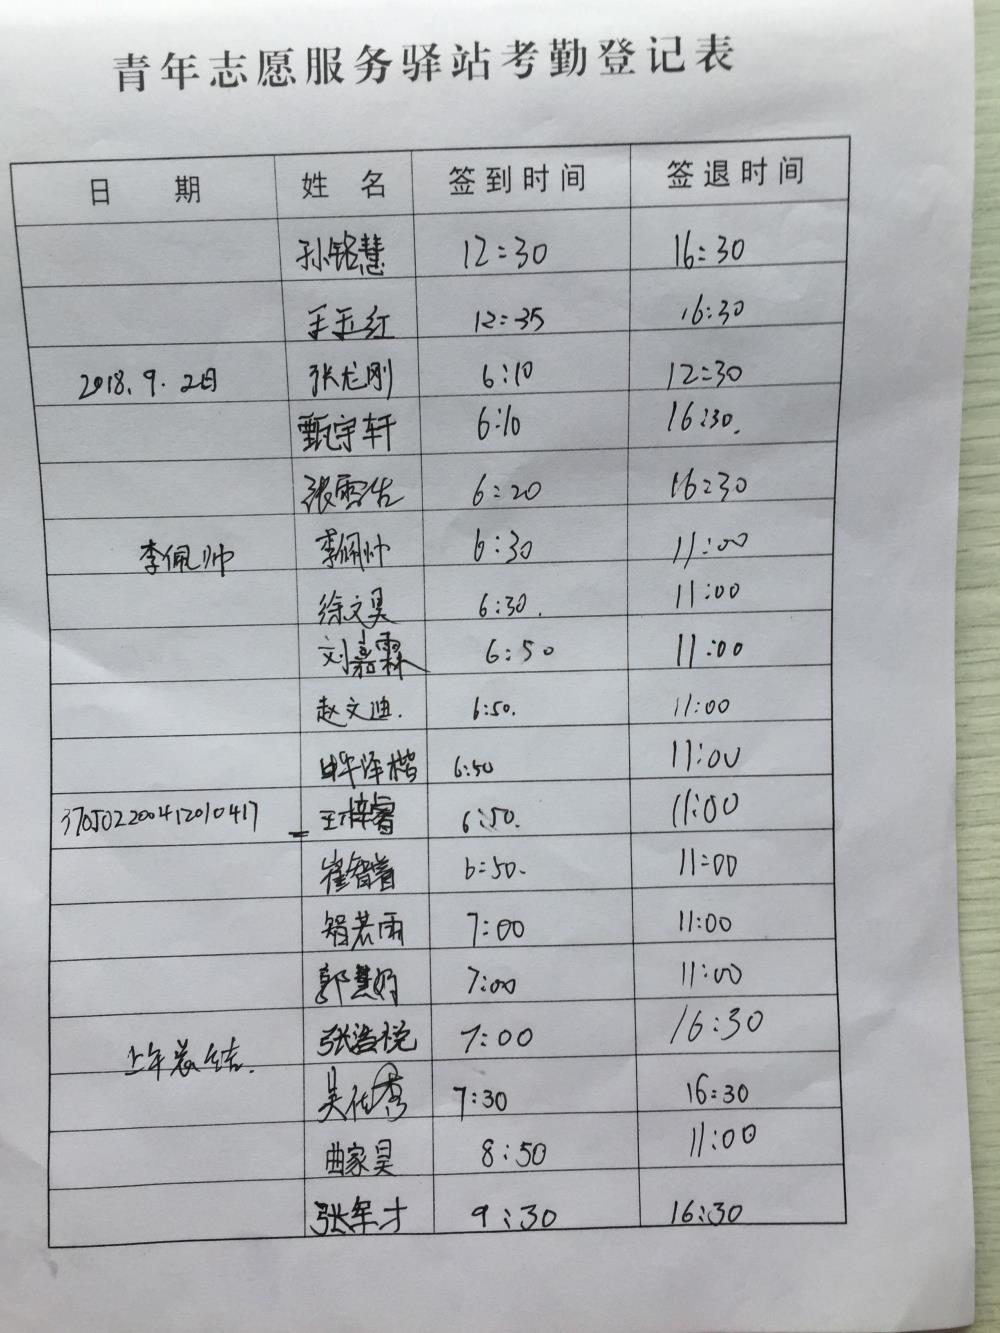 青年志愿服务驿站考勤登记表
日 期 姓 名 签到时间 签退时间
孙铭慧 12:30 16:30
王玉红 12:35 16:30
2018.9.2日 张龙刚 6:10 12:30
甄宇轩 6:10 16:30.
张雪洁 6:20 16:30
李佩帅 李佩帅 6:30 11:00
徐文昊 6:30. 11:00
刘嘉霖 6:50 11:00
赵文迪. 6:50. 11:00
泽楷 6:50 11:00
370502200412010417 王梓睿 6:50. 11:00
崔智 6:50. 11:00
若雨 7:00 11:00
郭慧好 7:00 11:00
张浩悦 7:00 16:30
上午总结. 吴 秀 7:30 16:30
曲家昊 8:50 11:00
张军才 9:30 16:30